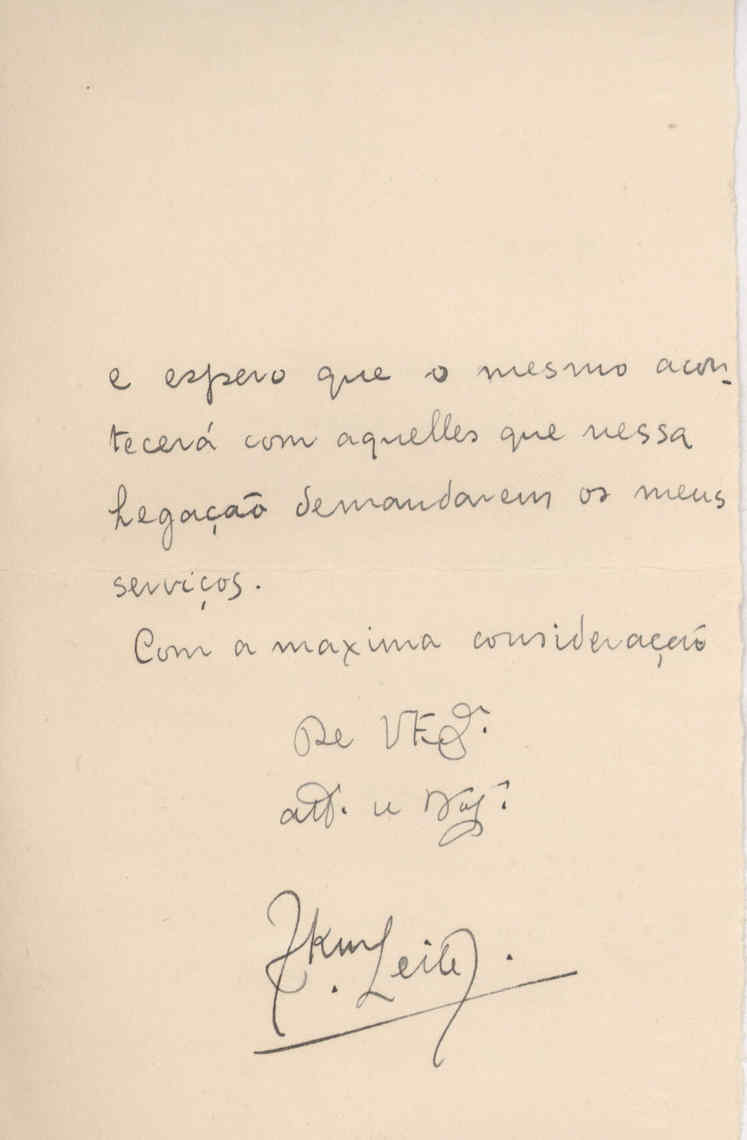 e espero que o mesmo acon-
tecerá com aquelles que nessa
Legação demandarem os meus
serviços.
Com a maxima consideração
De V Ex.ª
att.
Leite